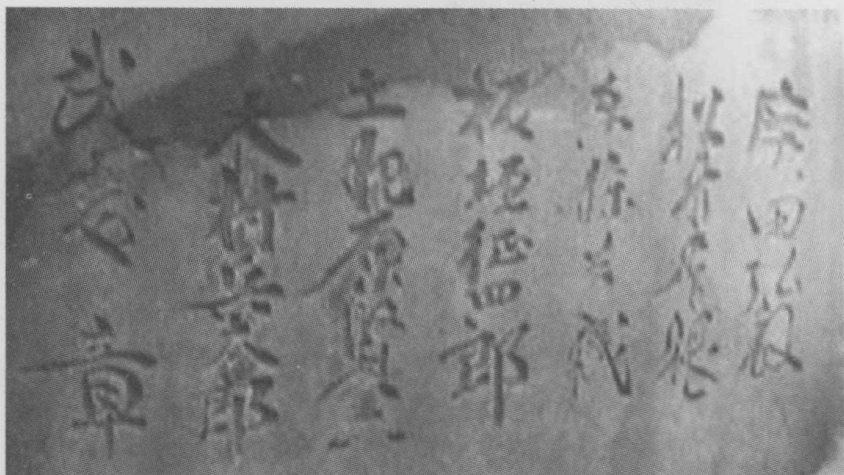 廣田弘毅
松井石根
東條英機
板垣征四郎
土肥原賢二
木村兵太郎
武藤章